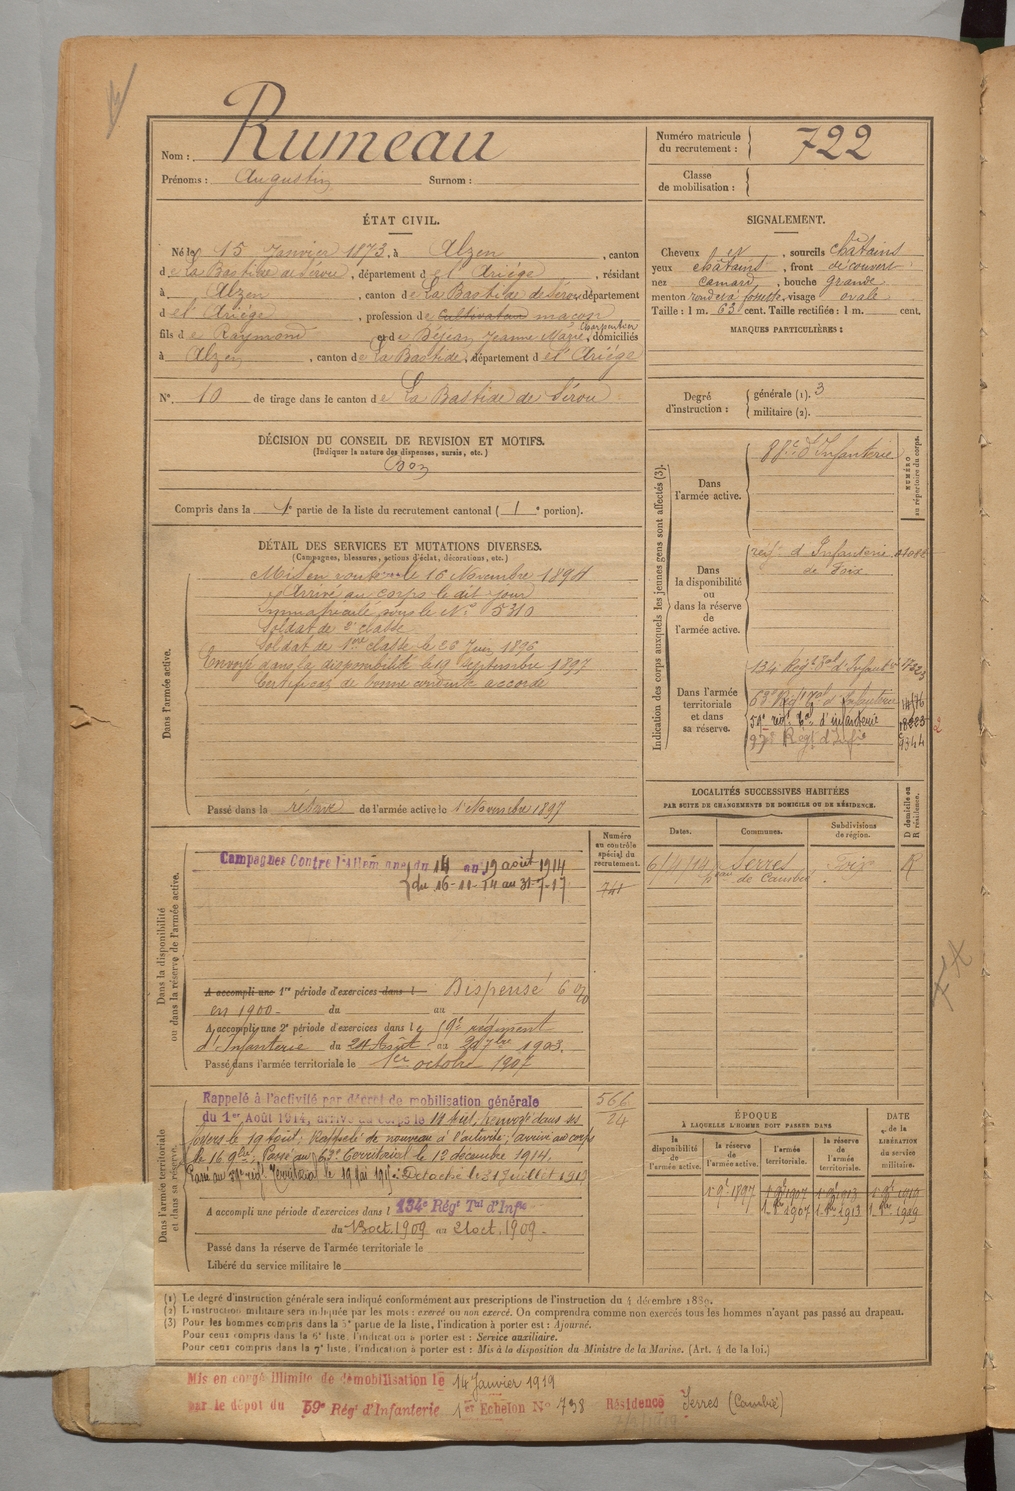 Nom : Rumeau
Prénoms : Augustin Surnom :
Numéro matricule du recrutement : 722
Classe de mobilisation :
ÉTAT CIVIL.
Né le 15 Janvier 1873, à Alzen, canton
de La Bastide de Sérou, département de l'Ariége, résidant
à Alzen, canton de La Bastide de Sérou, département
de l'Ariége, profession de Cultivateur maçon
Charpentier
fils de Raymond et de Béjean Jeanne Marie, domiciliés
à Alzen, canton de La Bastide, département de l'Ariége
N° 10 de tirage dans le canton de La Bastide de Sérou
DÉCISION DU CONSEIL DE REVISION ET MOTIFS.
(Indiquer la nature des dispenses, sursis, etc.)
Bon
Compris dans la 1e partie de la liste du recrutement cantonal (1e portion).
SIGNALEMENT.
Cheveux et, sourcils châtains
yeux châtains, front découvert
nez camard, bouche grande
menton rond et à fossette, visage ovale
Taille : 1 m. 63 cent. Taille rectifiée : 1 m. cent.
MARQUES PARTICULIÈRES :
Degré d'instruction : générale (1). 3
militaire (2).
DÉTAIL DES SERVICES ET MUTATIONS DIVERSES.
(Campagnes, blessures, actions d'éclat, décorations, etc.)
Dans l'armée active.
Mis en route le 16 Novembre 1894
Arrivé au corps le dit jour
Immatriculé sous le N° 5310
Soldat de 2e classe
Soldat de 1ere classe le 26 Juin 1896
Envoyé dans la disponibilité le 19 Septembre 1897
Certificat de bonne conduite accordé
Passé dans la réserve de l'armée active le 1er Novembre 1897
Indication des corps auxquels les jeunes gens sont affectés (3).
NUMÉRO au répertoire du corps.
Dans l'armée active.
88e d'Infanterie
Dans la disponibilité ou dans la réserve de l'armée active.
régt d'Infanterie
de Foix
Dans l'armée territoriale et dans sa réserve.
134 Régt Tal d'Infant
63e Régt Tal d'Infanterie
59e rég. Tal d'infanterie
LOCALITÉS SUCCESSIVES HABITÉES
PAR SUITE DE CHANGEMENTS DE DOMICILE OU DE RÉSIDENCE.
D domicile ou R résidence.
Dates. Communes. Subdivisions de région.
6/4/14 Serres Foix R
Dans la disponibilité ou dans la réserve de l'armée active.
Numéro au contrôle spécial du recrutement.
741
Campagnes Contre l'Allemagne du 14 au 19 août 1914
du 16-11-14 au 31-7-17
A accompli une 1re période d'exercices dans l Dispensé
en 1900 du au
A accompli une 2e période d'exercices dans le 59e régiment
d'Infanterie du 24 Août au 20 7bre 1903.
Passé dans l'armée territoriale le 1er octobre 1907
Dans l'armée territoriale et dans sa réserve.
566
24
Rappelé à l'activité par décret de mobilisation générale
du 1er Août 1914, arrivé au corps le 14 Aout, renvoyé dans ses
foyers le 19 aout; Rappelé de nouveau à l'activité; arrivé au corps
le 16 9bre. Passé au 63e Territorial le 12 décembre 1914.
Passé au 59e rég. Territorial le 19 Mai 1915. Détaché le 31 Juillet 1917
A accompli une période d'exercices dans l 134e Régt Tal d'Infie
du 13 oct. 1909 au 21 oct. 1909.
Passé dans la réserve de l'armée territoriale le
Libéré du service militaire le
ÉPOQUE
À LAQUELLE L'HOMME DOIT PASSER DANS
la disponibilité de l'armée active. la réserve de l'armée active. l'armée territoriale. la réserve de l'armée territoriale.
DATE de la LIBÉRATION du service militaire.
1 9bre 1897 1 9bre 1907 1 9bre 1913 1 9bre 1919
1. 8bre 1907 1. 8bre 1913 1. 8bre 1919
(1) Le degré d'instruction générale sera indiqué conformément aux prescriptions de l'instruction du 4 décembre 1889.
(2) L'instruction militaire sera indiquée par les mots : exercé ou non exercé. On comprendra comme non exercés tous les hommes n'ayant pas passé au drapeau.
(3) Pour les hommes compris dans la 5e partie de la liste, l'indication à porter est : Ajourné.
Pour ceux compris dans la 6e liste, l'indication à porter est : Service auxiliaire.
Pour ceux compris dans la 7e liste, l'indication à porter est : Mis à la disposition du Ministre de la Marine. (Art. 4 de la loi.)
Mis en congé illimité de démobilisation le 14 Janvier 1919
par le dépot du 59e Régt d'Infanterie 1er Echelon N° 738 Résidence Serres (Cambié)